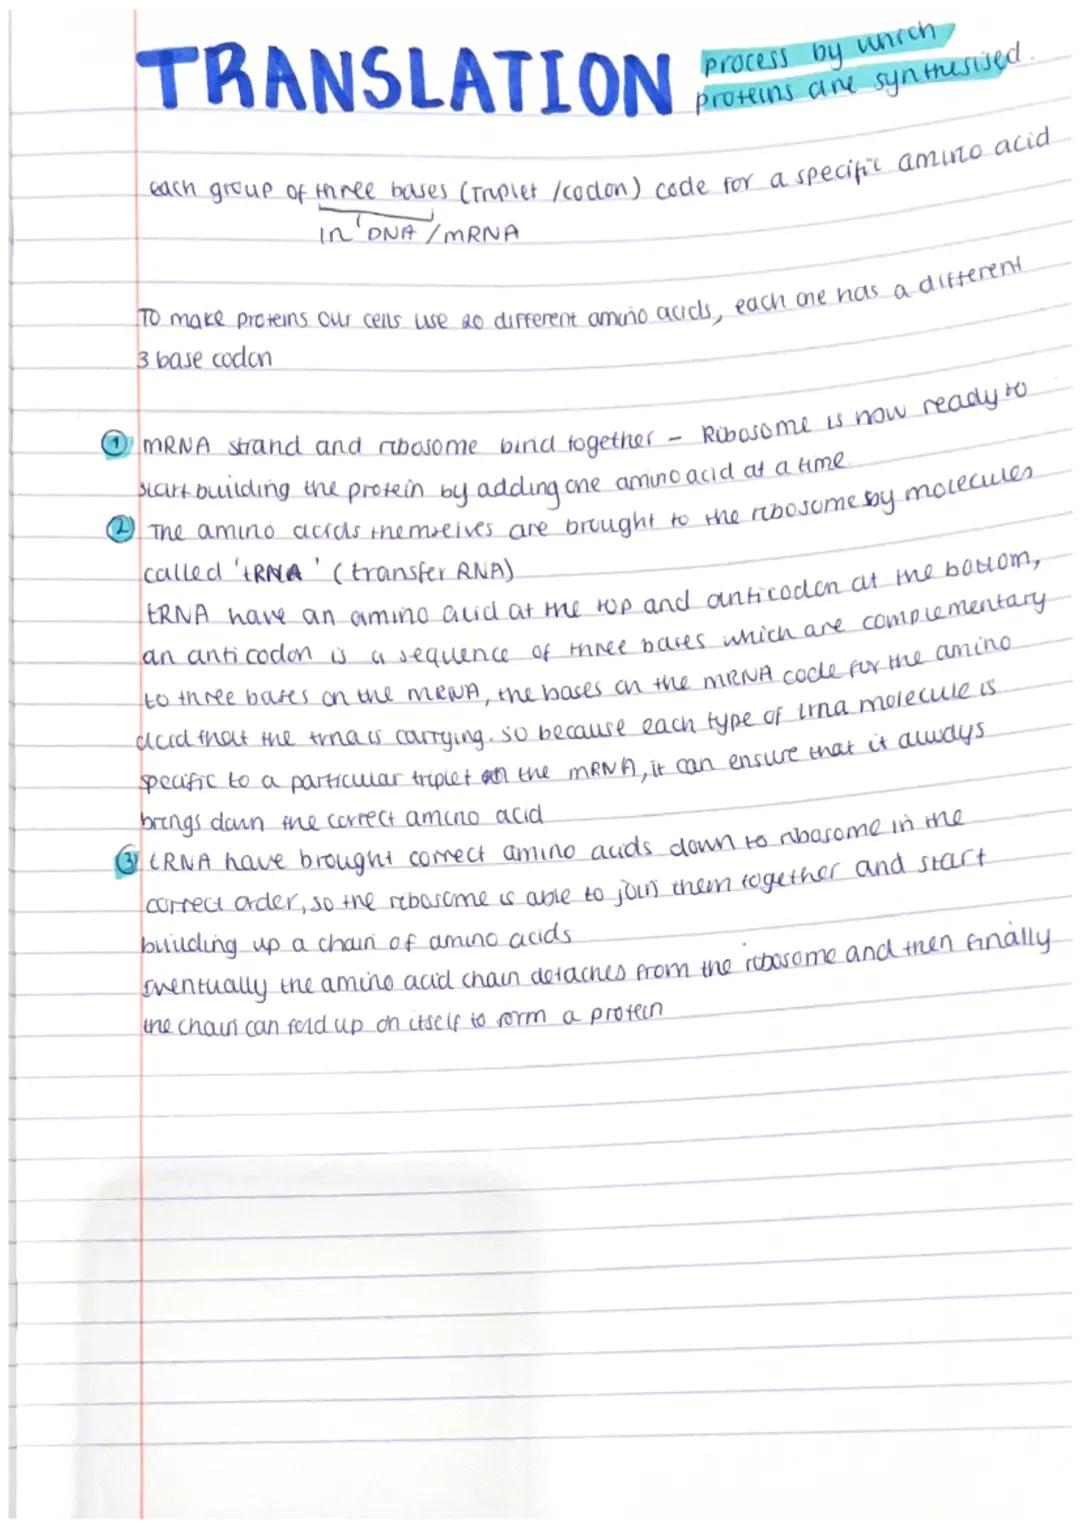 TRANSLATION process by which
proteins are synthesised.
each group of three bases (Triplet / codon) code for a specific amino acid
in DNA / mRNA
To make proteins our cells use 20 different amino acids, each one has a different
3 base codon
1 mRNA strand and ribosome bind together - Ribosome is now ready to
start building the protein by adding one amino acid at a time.
2 The amino acids themselves are brought to the ribosome by molecules
called 'tRNA' (transfer RNA)
tRNA have an amino acid at the top and anticodon at the bottom,
an anticodon is a sequence of three bases which are complementary
to three bases on the mRNA, the bases on the mRNA code for the amino
acid that the trna is carrying. so because each type of trna molecule is
specific to a particular triplet on the mRNA, it can ensure that it always
brings down the correct amino acid
3 tRNA have brought correct amino acids down to ribosome in the
correct order, so the ribosome is able to join them together and start
building up a chain of amino acids
eventually the amino acid chain detaches from the ribosome and then finally
the chain can fold up on itself to form a protein